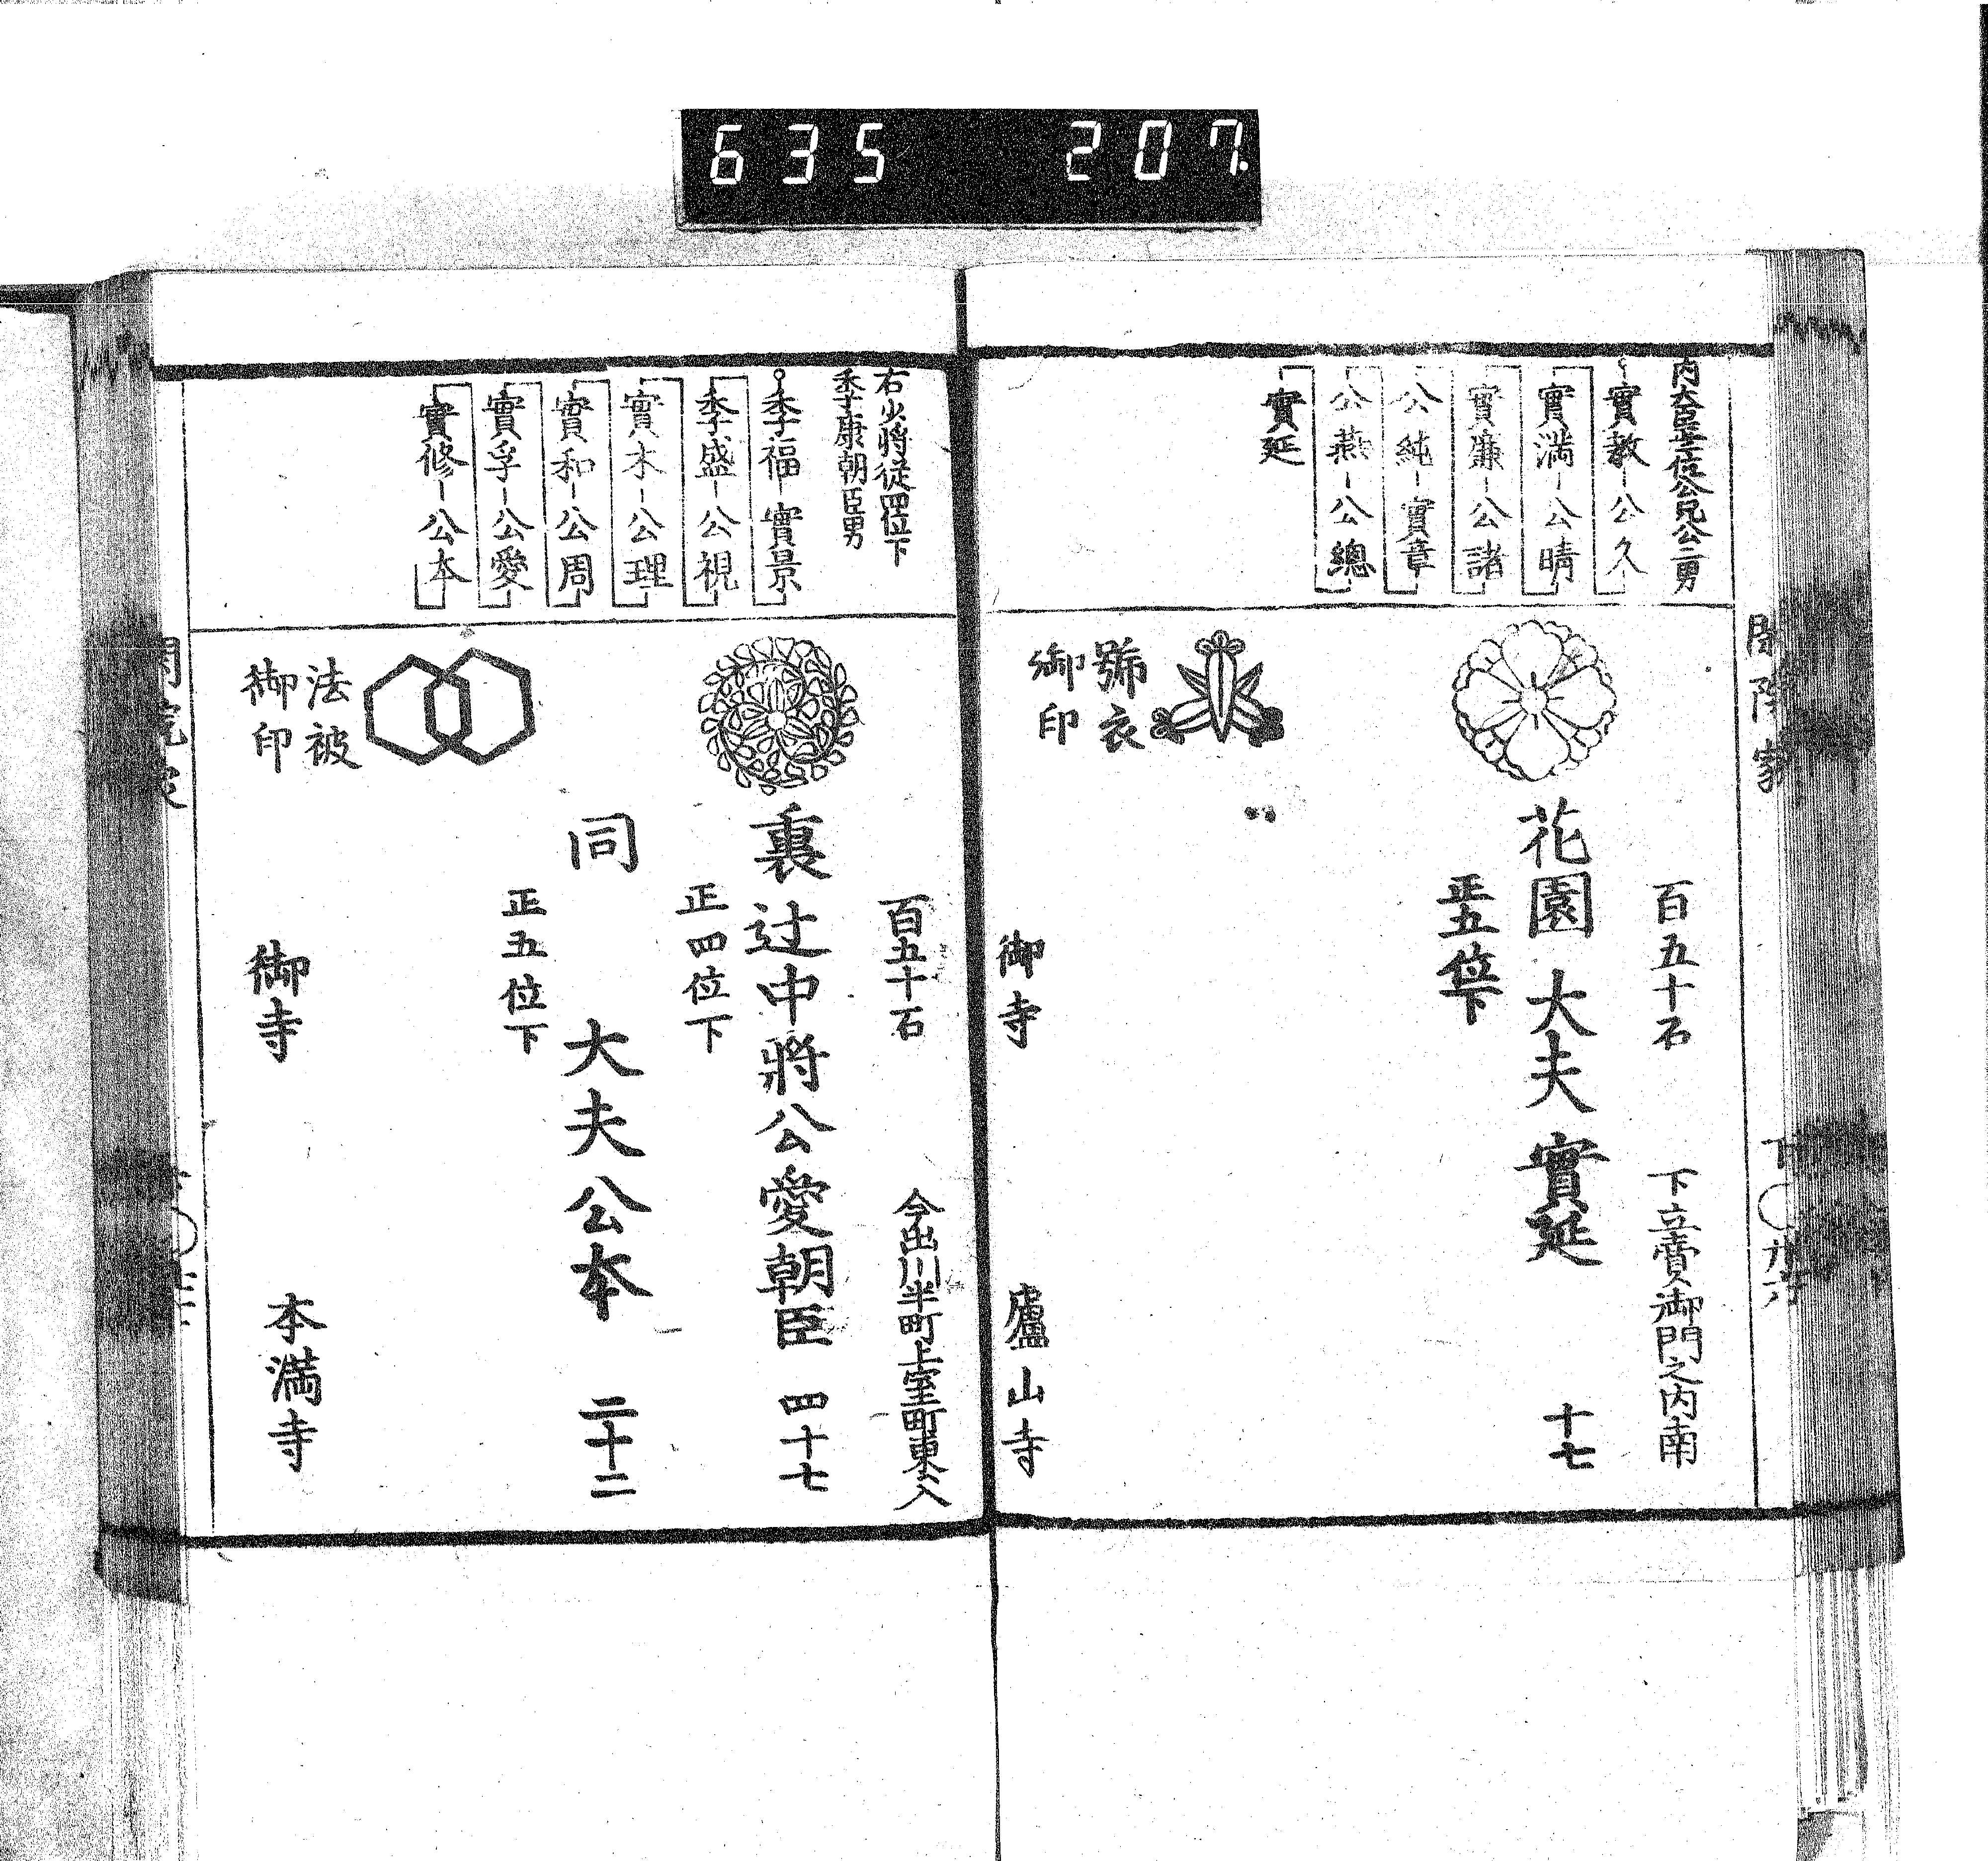 635 207.
内大臣正二位公兄公二男
實教-公久
實満-公晴
實廉-公諸
公純-實章
公燕-公總
實延
百五十石 下立賣御門之内南
花園大夫實延 十七
正五位下
號衣
御印
御寺 廬山寺
右少將從四位下
季康朝臣男
季福-實景
季盛-公視
實本-公理
實和-公周
實孚-公愛
實修-公本
百五十石 今出川半町上室町東ヘ入
裏辻中將公愛朝臣 四十七
正四位下
同 大夫公本 二十二
正五位下
法被
御印
御寺 本満寺